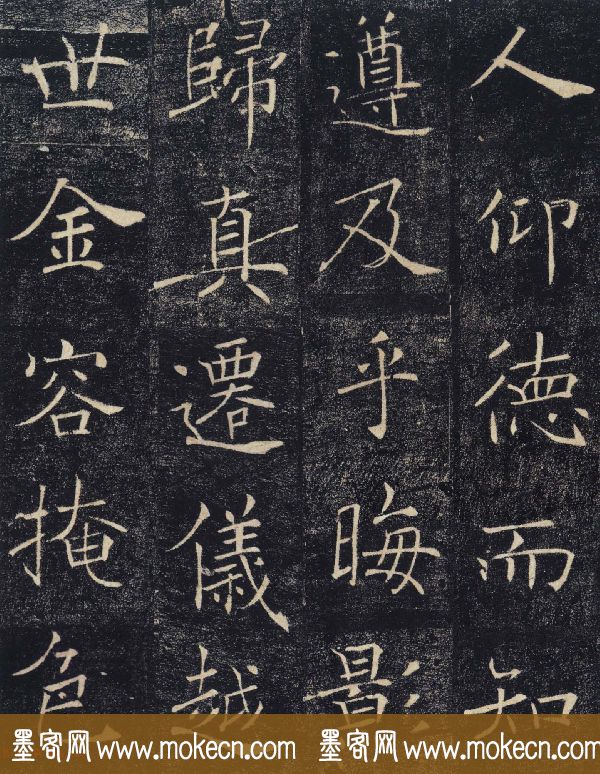 人仰德而知
遵及乎晦影
歸真遷儀越
世金容掩色
墨客网 www.mokecn.com 墨客网 www.mokecn.com